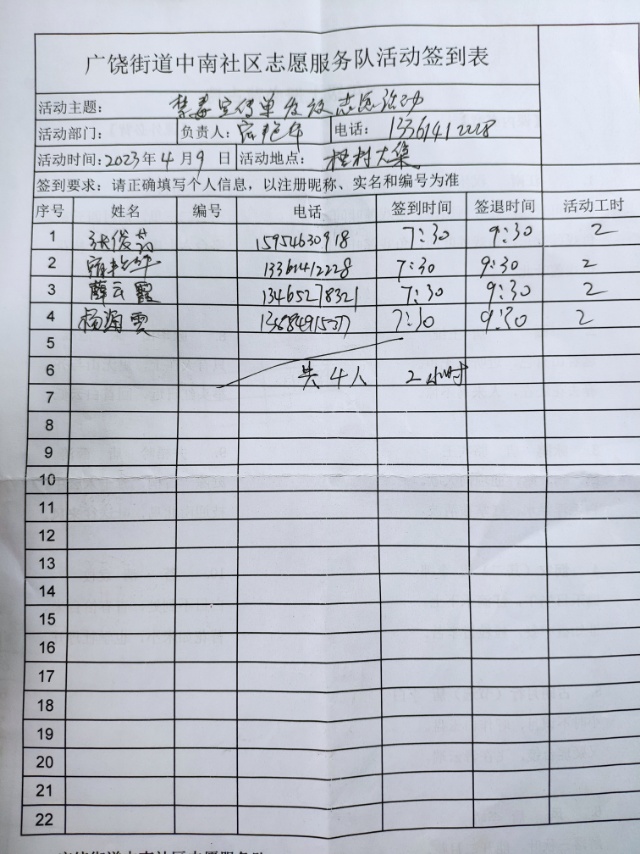 广饶街道中南社区志愿服务队活动签到表
活动主题: 禁毒宣传单发放志愿活动
活动部门: 负责人: 电话: 13361412228
活动时间: 2023年4月9日 活动地点: 大集
签到要求: 请正确填写个人信息，以注册昵称、实名和编号为准
序号 姓名 编号 电话 签到时间 签退时间 活动工时
1 张俊 15954630918 7:30 9:30 2
2 13361412228 7:30 9:30 2
3 薛云霞 13465278321 7:30 9:30 2
4 杨海雲 13684915377 7:30 9:30 2
5
6 共4人 2小时
7
8
9
10
11
12
13
14
15
16
17
18
19
20
21
22
广饶街道中南社区志愿服务队